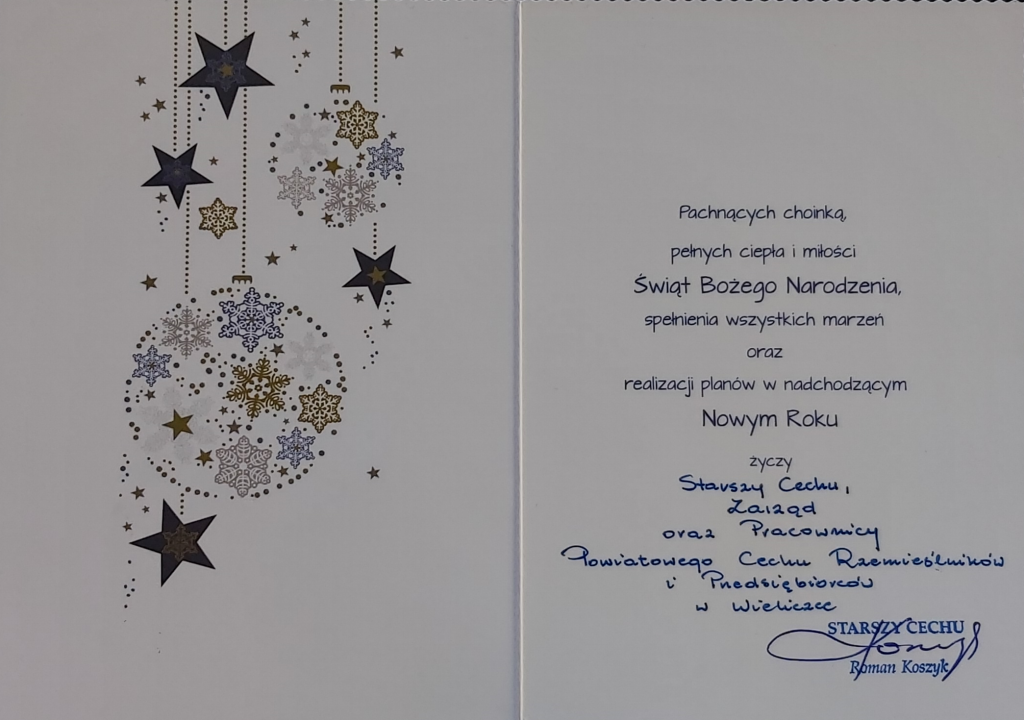 Pachnących choinką,
pełnych ciepła i miłości
Świąt Bożego Narodzenia,
spełnienia wszystkich marzeń
oraz
realizacji planów w nadchodzącym
Nowym Roku
życzy
Starszy Cechu,
Zarząd
oraz Pracownicy
Powiatowego Cechu Rzemieślników
i Przedsiębiorców
w Wieliczce
STARSZY CECHU
Roman Koszyk